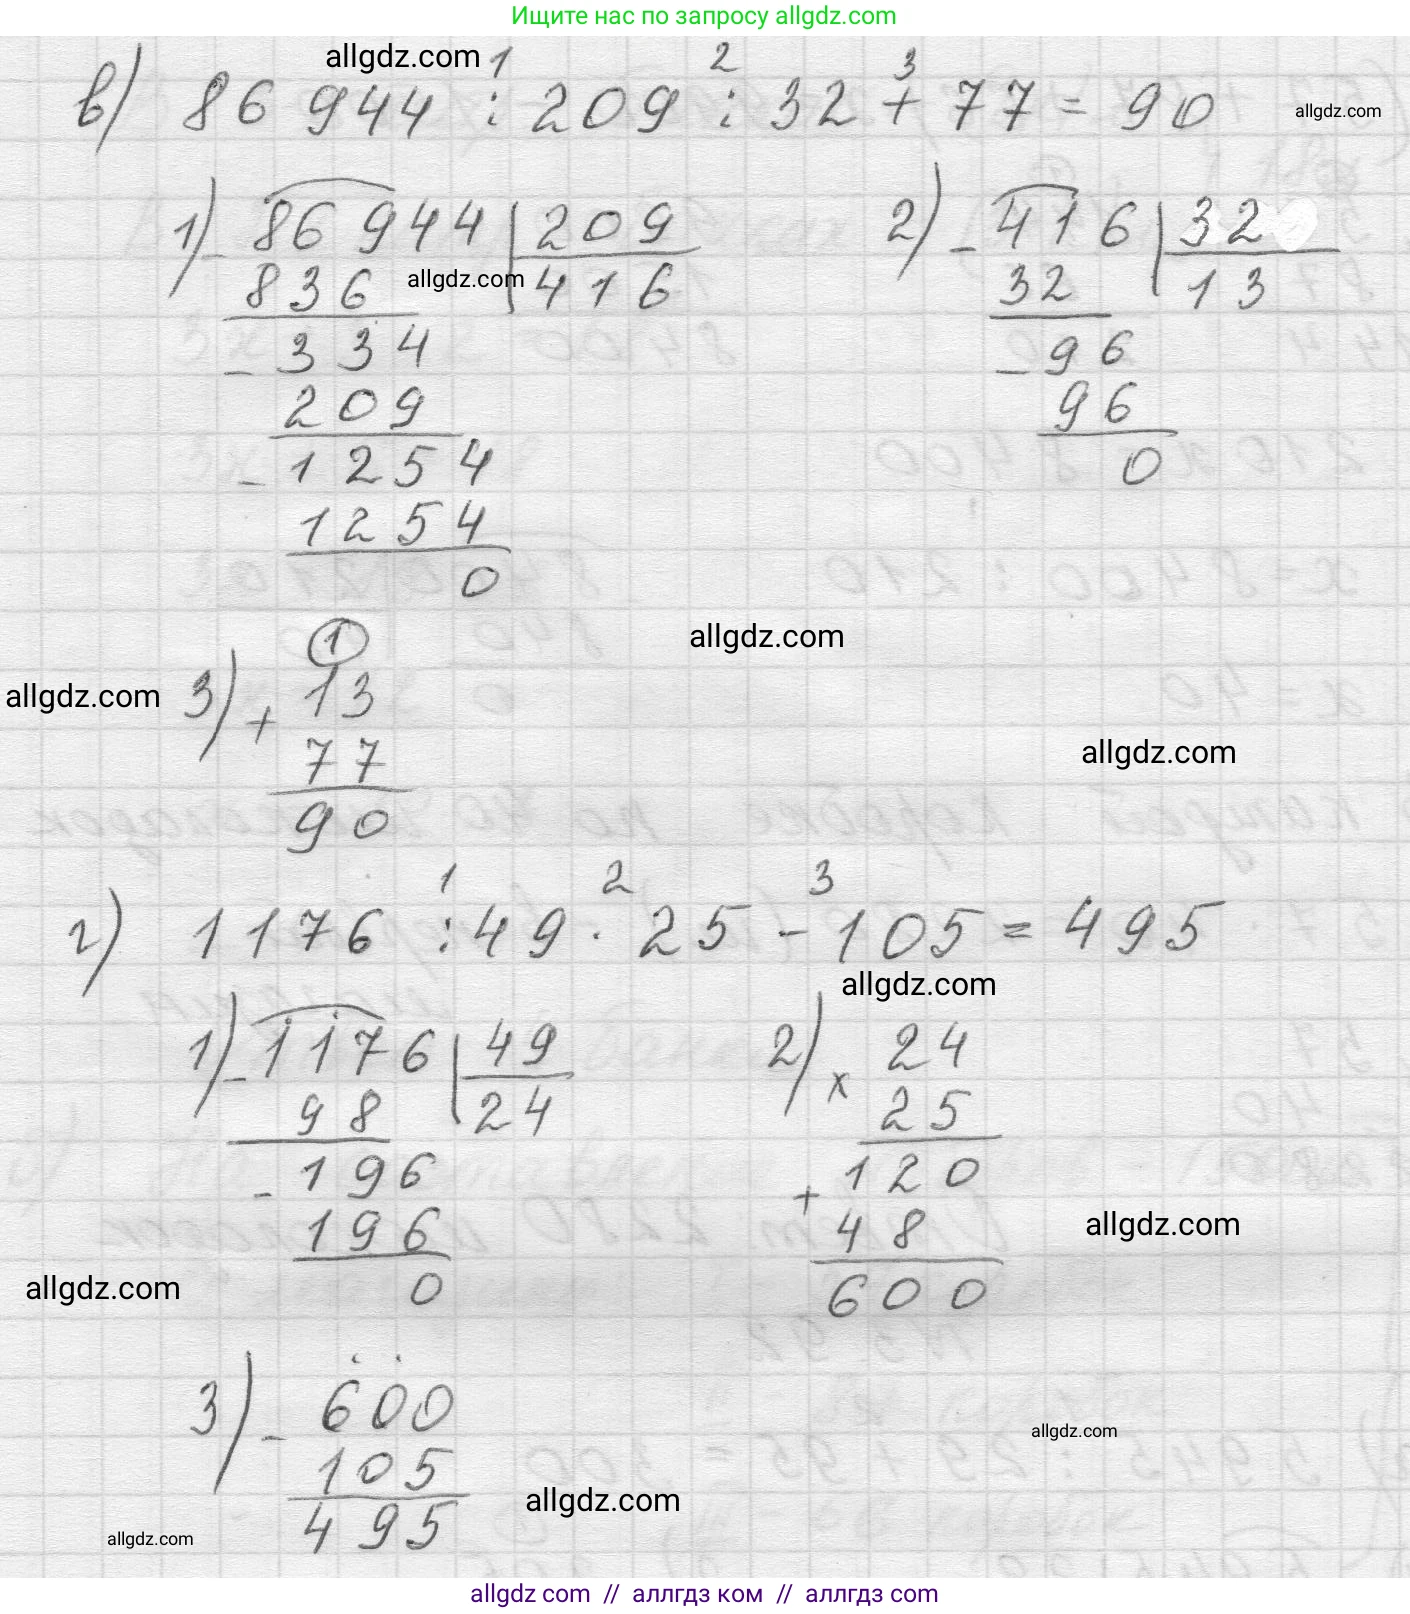 Ищите нас по запросу allgdz.com
allgdz.com
1 2 3
в) 86 944 : 209 : 32 + 77 = 90
allgdz.com
1) - 86 944 | 209
836 416
allgdz.com
- 334
209
- 1254
1254
0
2) - 416 | 32
32 13
- 96
96
0
allgdz.com
allgdz.com
1
3) + 13
77
90
allgdz.com
1 2 3
г) 1176 : 49 · 25 - 105 = 495
allgdz.com
1) - 1176 | 49
98 24
- 196
196
0
2) x 24
25
120
+ 48
600
allgdz.com
allgdz.com
3) - 600
105
495
allgdz.com
allgdz.com
allgdz.com
allgdz.com // аллгдз ком // аллгдз.com